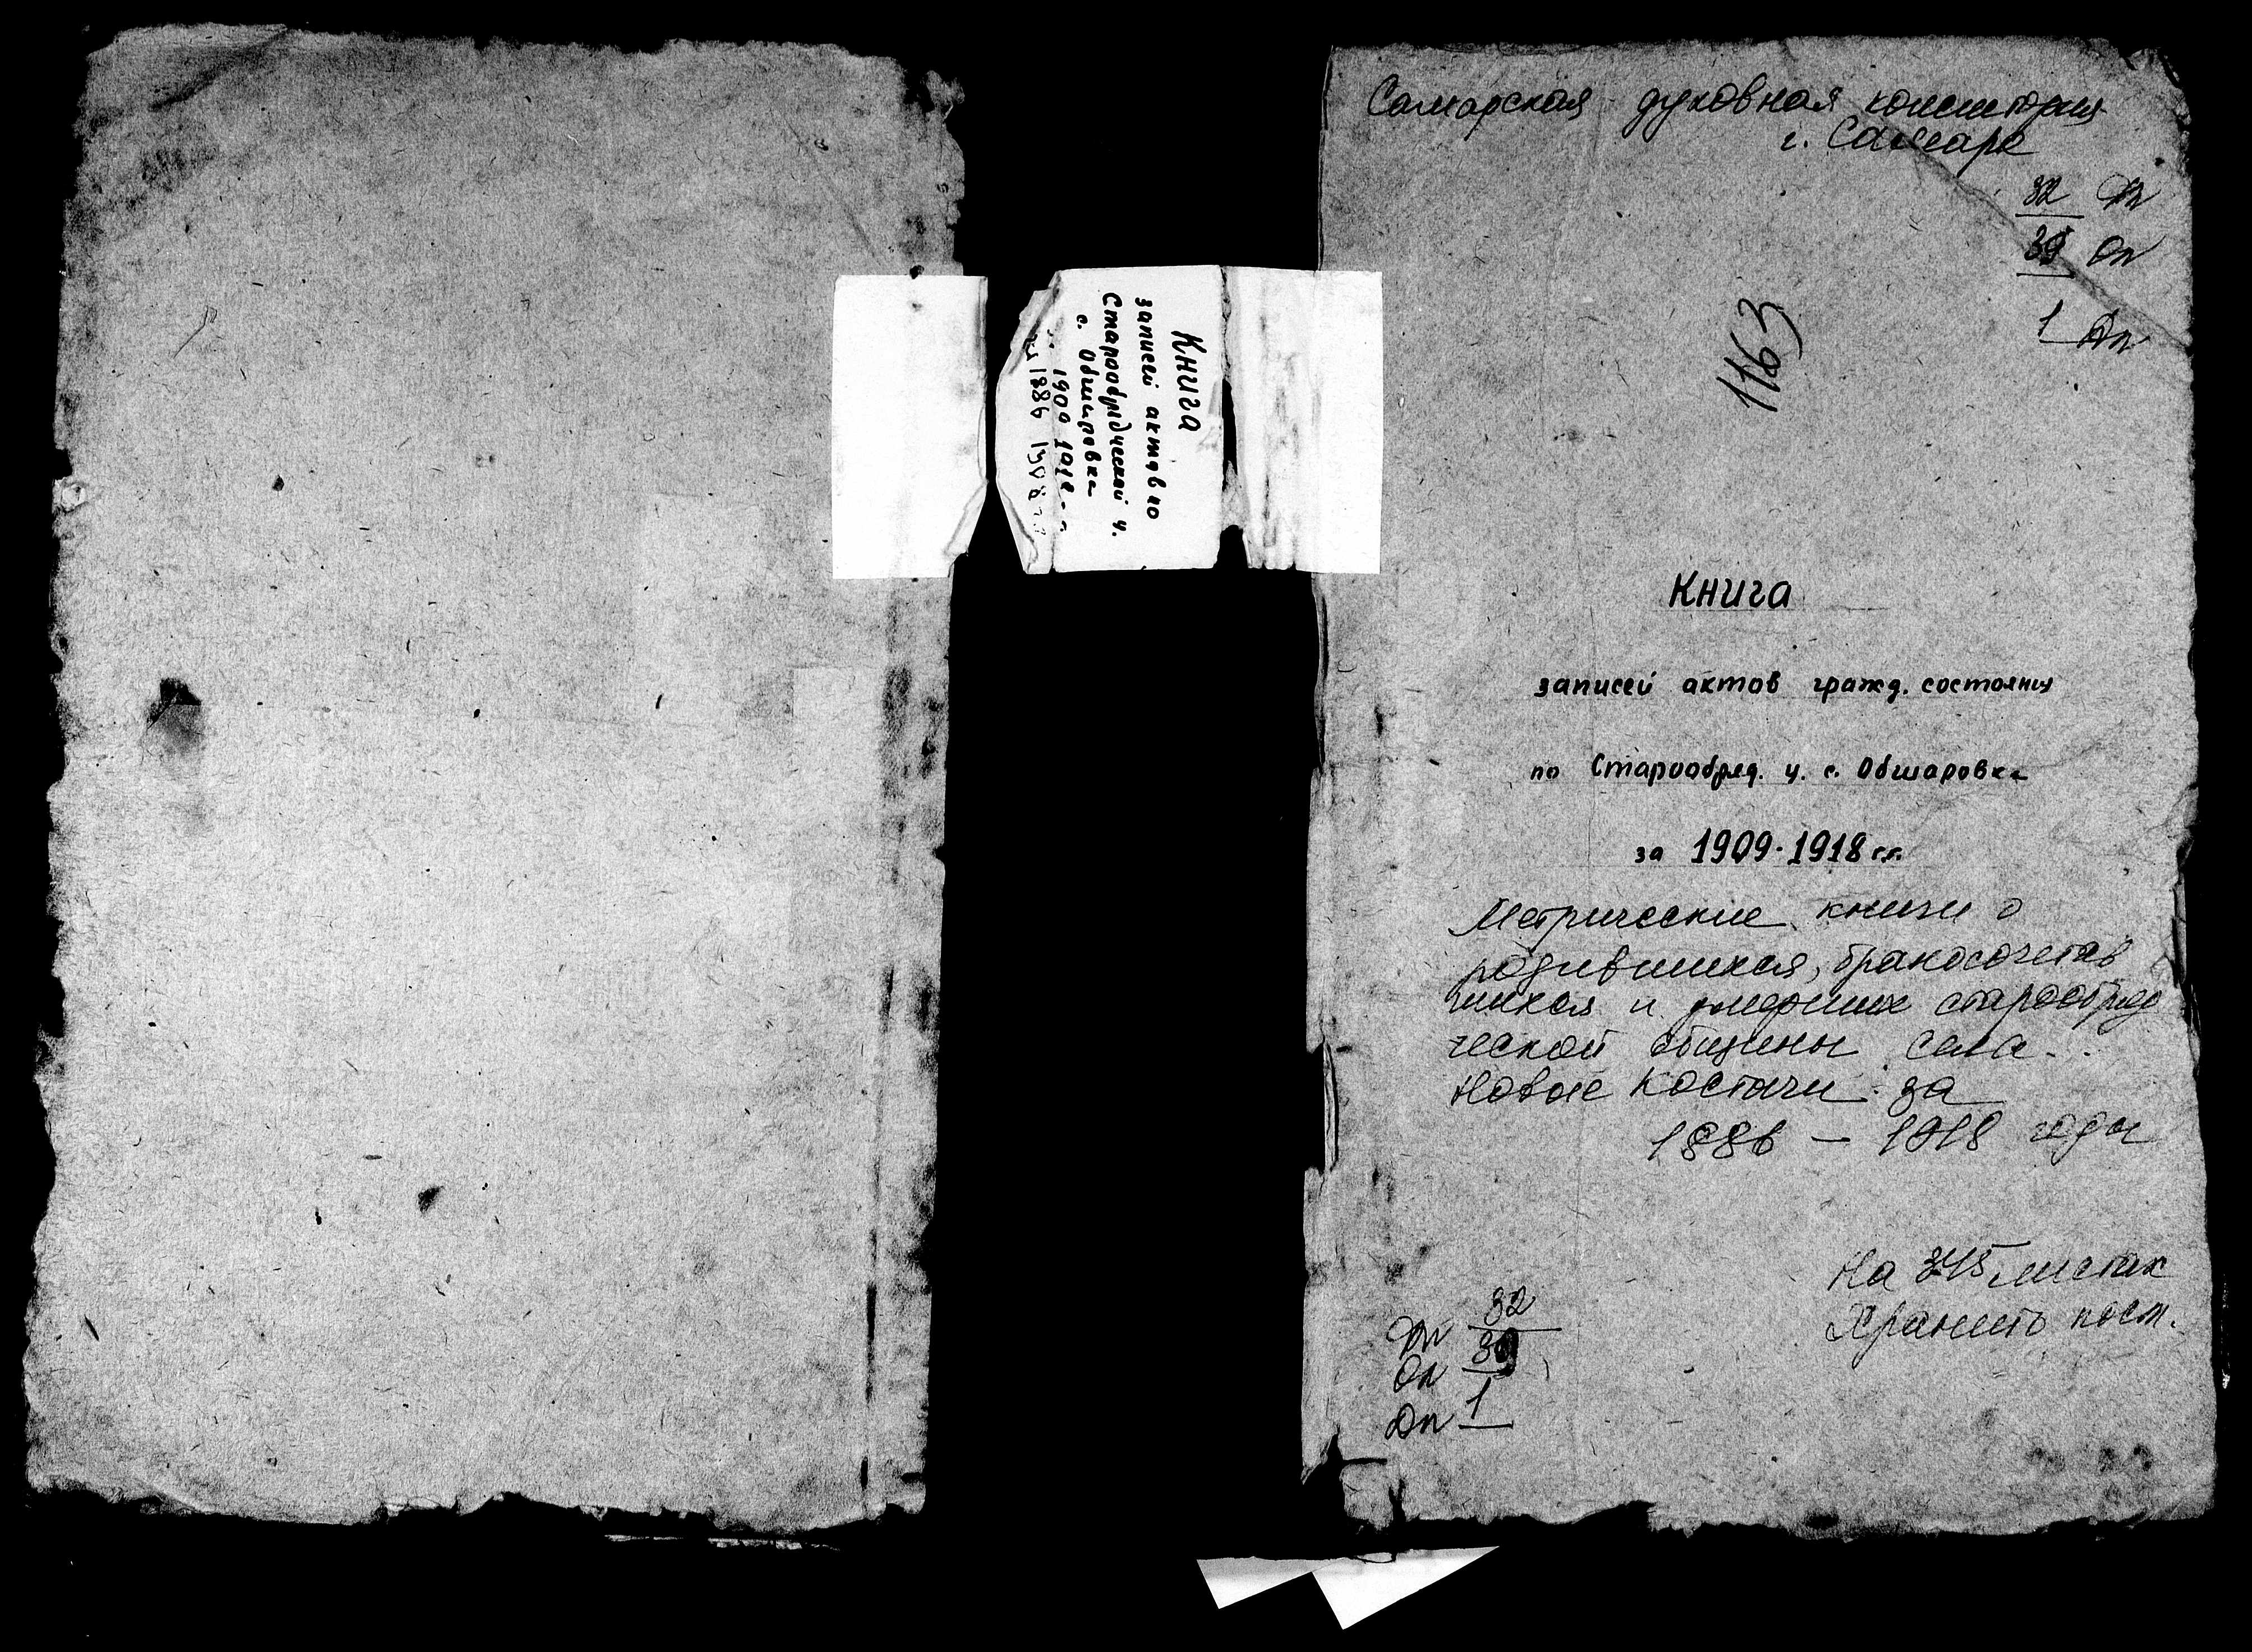 Книга
записей актов по
Старообрядческой ц.
с. Обшаровка
1909 1918
1886 1908
Самарская духовная консистория
г. Самара
32 Фп
39 Оп
1 Дп
1163
Книга
записей актов гражд. состояния
по Старообряд. ц. с. Обшаровка
за 1909-1918 г.г.
Метрические книги о
родившихся, бракосочетав
шихся и умерших старообряд
ческой общины села..
Новые Костычи за
1886 — 1918 годы
На 345 листах
Хранить пост.
Фп 32
Оп 39
Дп 1